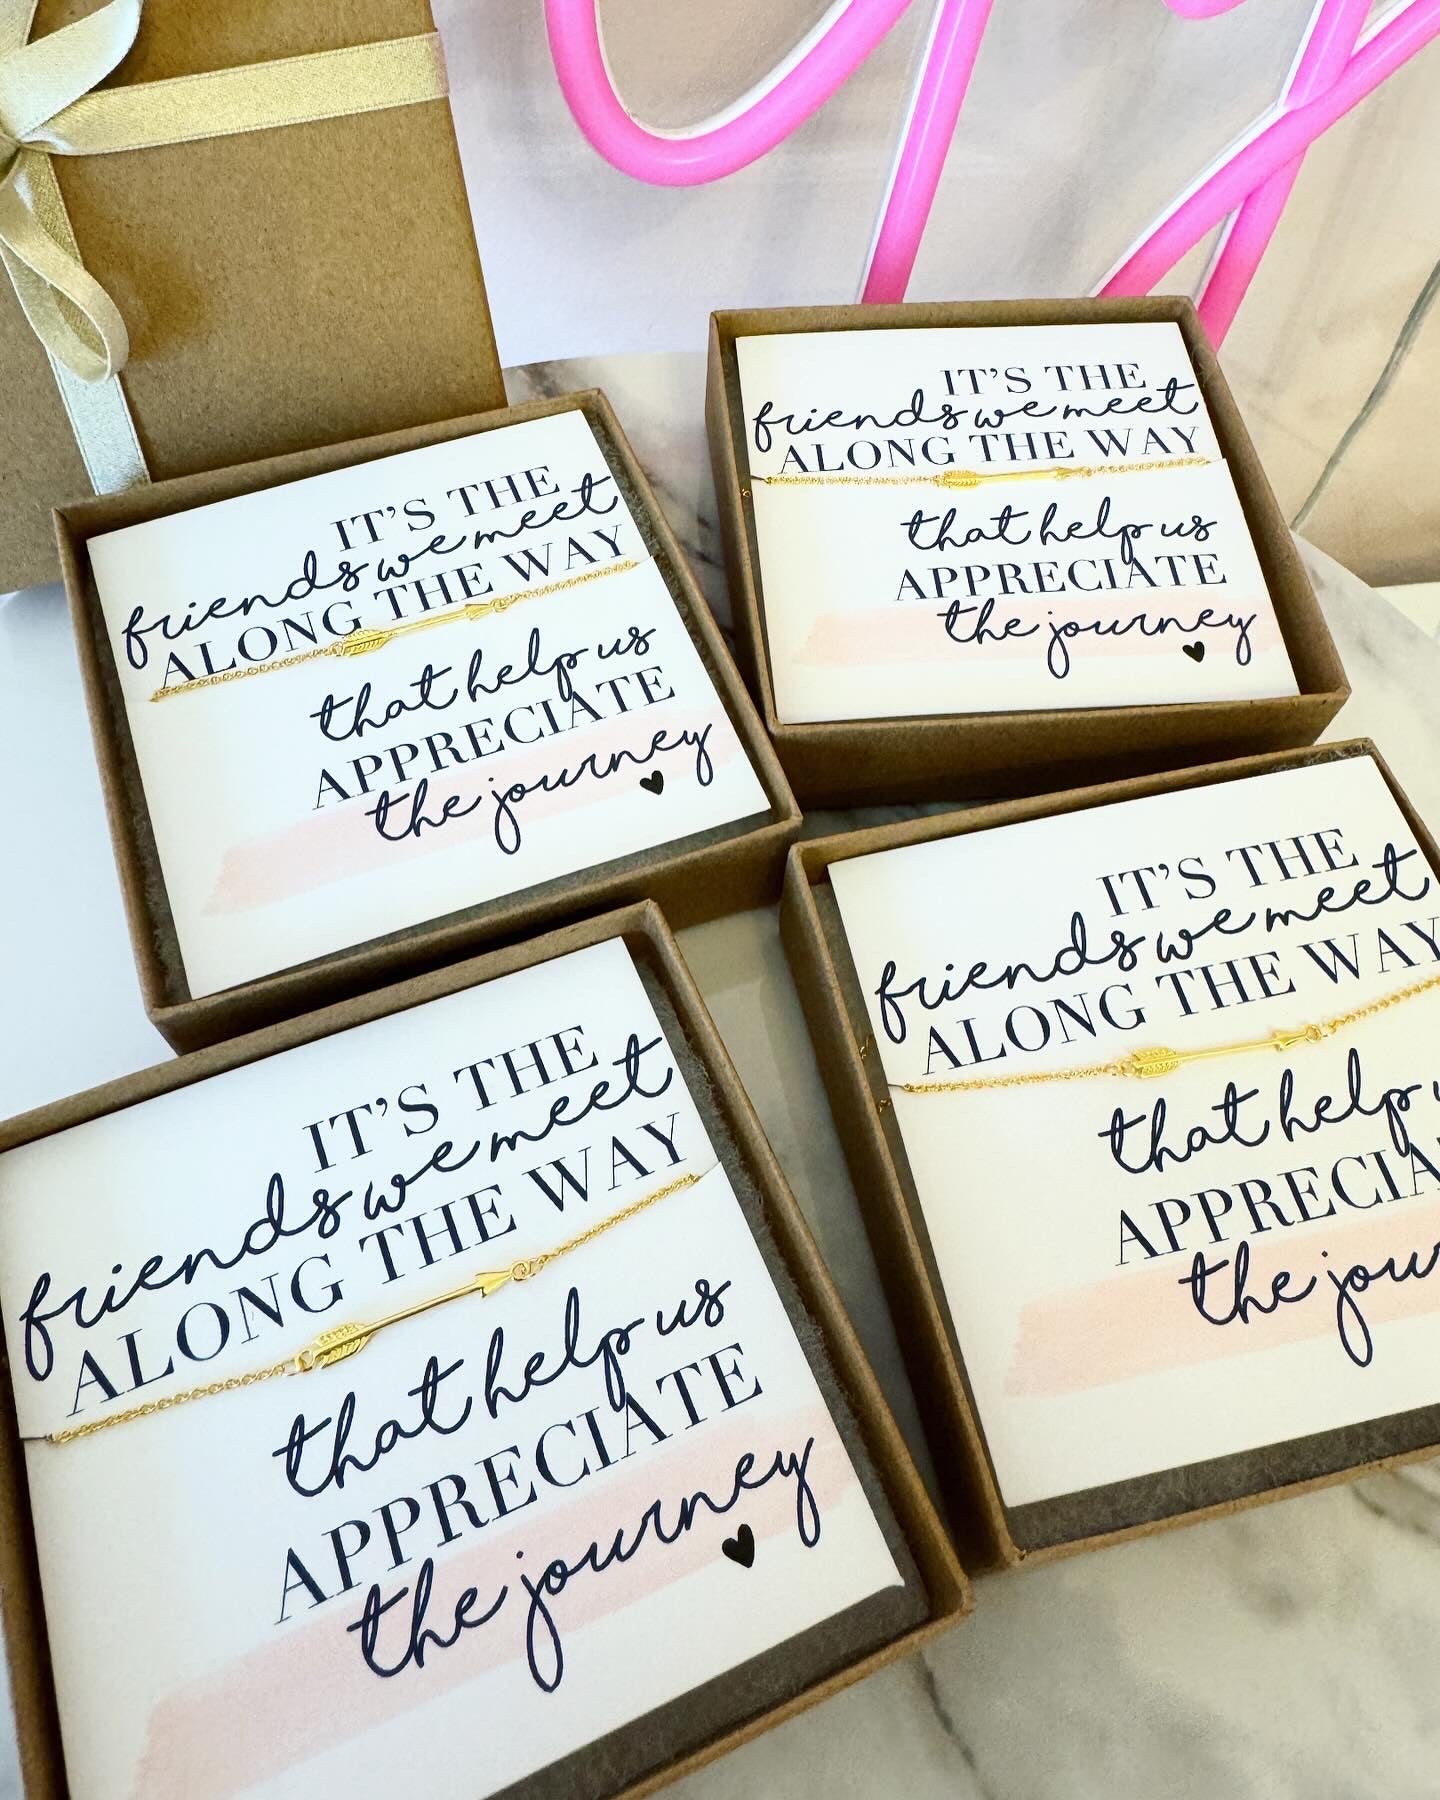 IT'S THE
friends we meet
ALONG THE WAY
that help us
APPRECIATE
the journey
IT'S THE
friends we meet
ALONG THE WAY
that help us
APPRECIATE
the journey
IT'S THE
friends we meet
ALONG THE WAY
that help us
APPRECIATE
the journey
IT'S THE
friends we meet
ALONG THE WAY
that help u
APPRECIA
the jou